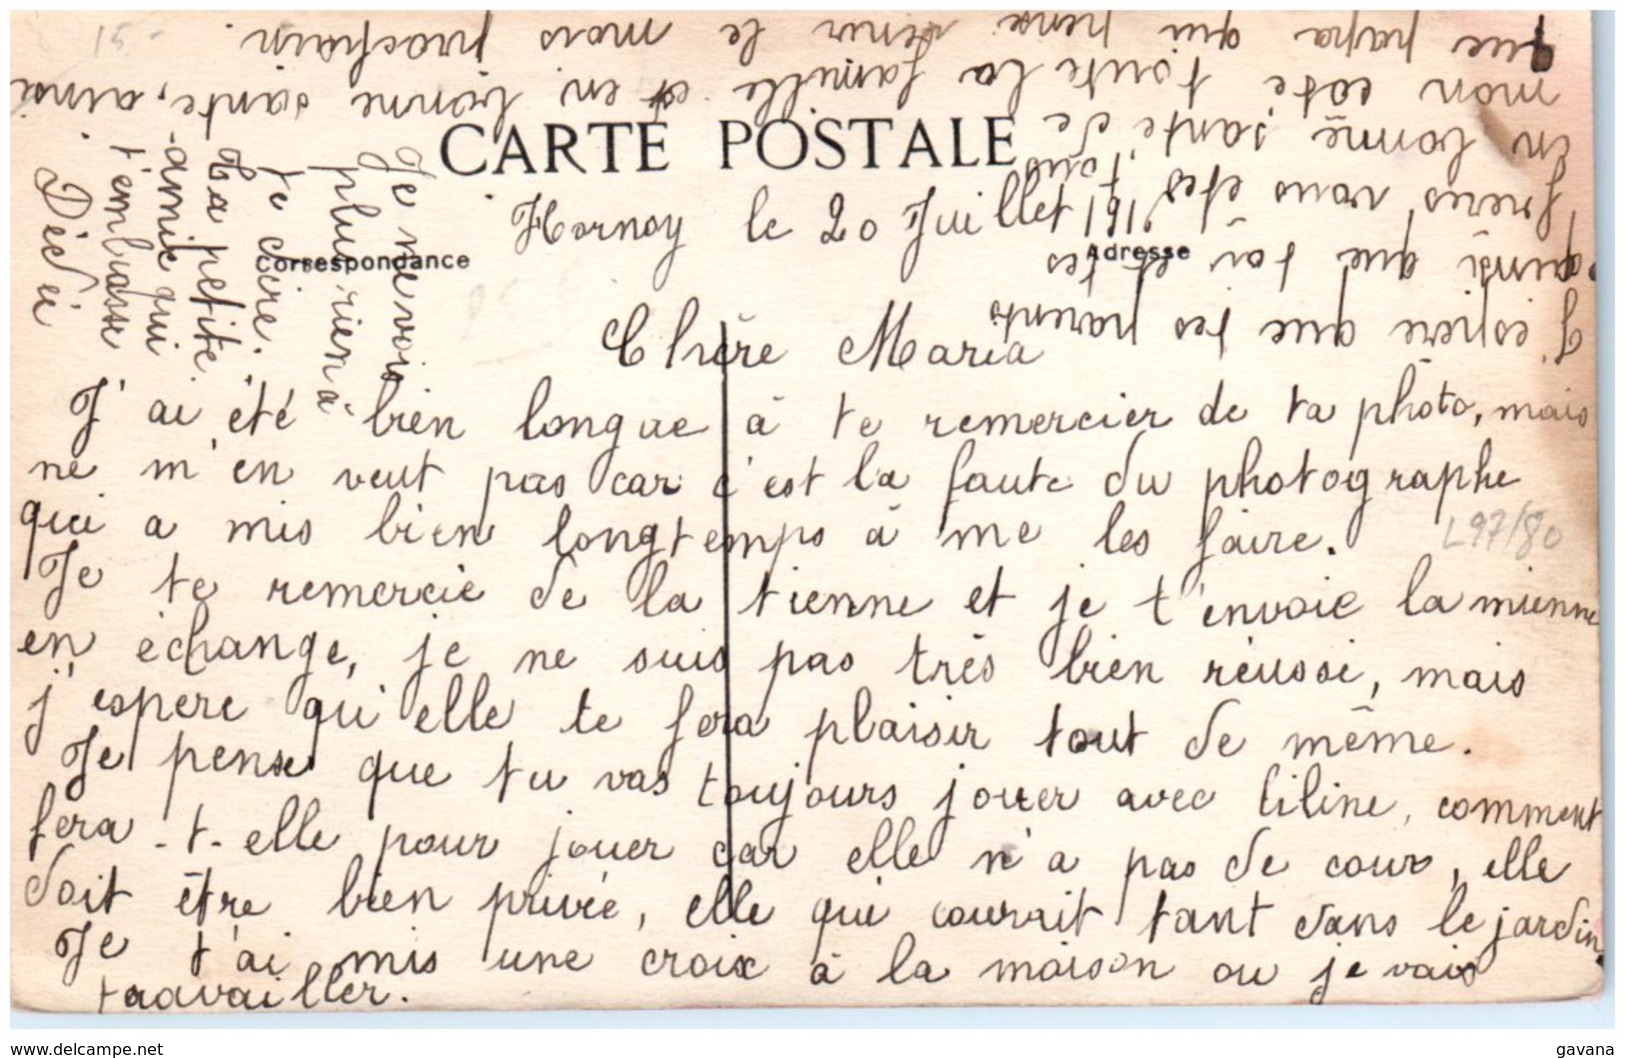 15-
CARTE POSTALE
Correspondance
Adresse
Hornoy le 20 Juillet 1911
Chère Maria
J'ai été bien longue à te remercier de ta photo, mais
ne m'en veut pas car c'est la faute du photographe
qui a mis bien longtemps à me les faire.
L97/80
Je te remercie de la tienne et je t'envoie la mienne
en échange, je ne suis pas très bien réussi, mais
j'espere qu'elle te fera plaisir tout de même.
Je pense que tu vas toujours jouer avec liline, comment
fera-t-elle pour jouer car elle n'a pas de cour, elle
doit être bien privée, elle qui courrait tant dans le jardin
Je t'ai mis une croix à la maison ou je vais
travailler.
J'espère que tes parents
ainsi que toi et tes
frères vous êtes tous
en bonne santé de
mon coté toute la famille est en bonne sante, ainsi
que papa qui pense venir le mois prochain.
Je ne vois
plus rien à
te dire.
Ta petite
amie qui
t'embrasse
Dédéi
www.delcampe.net
gavana